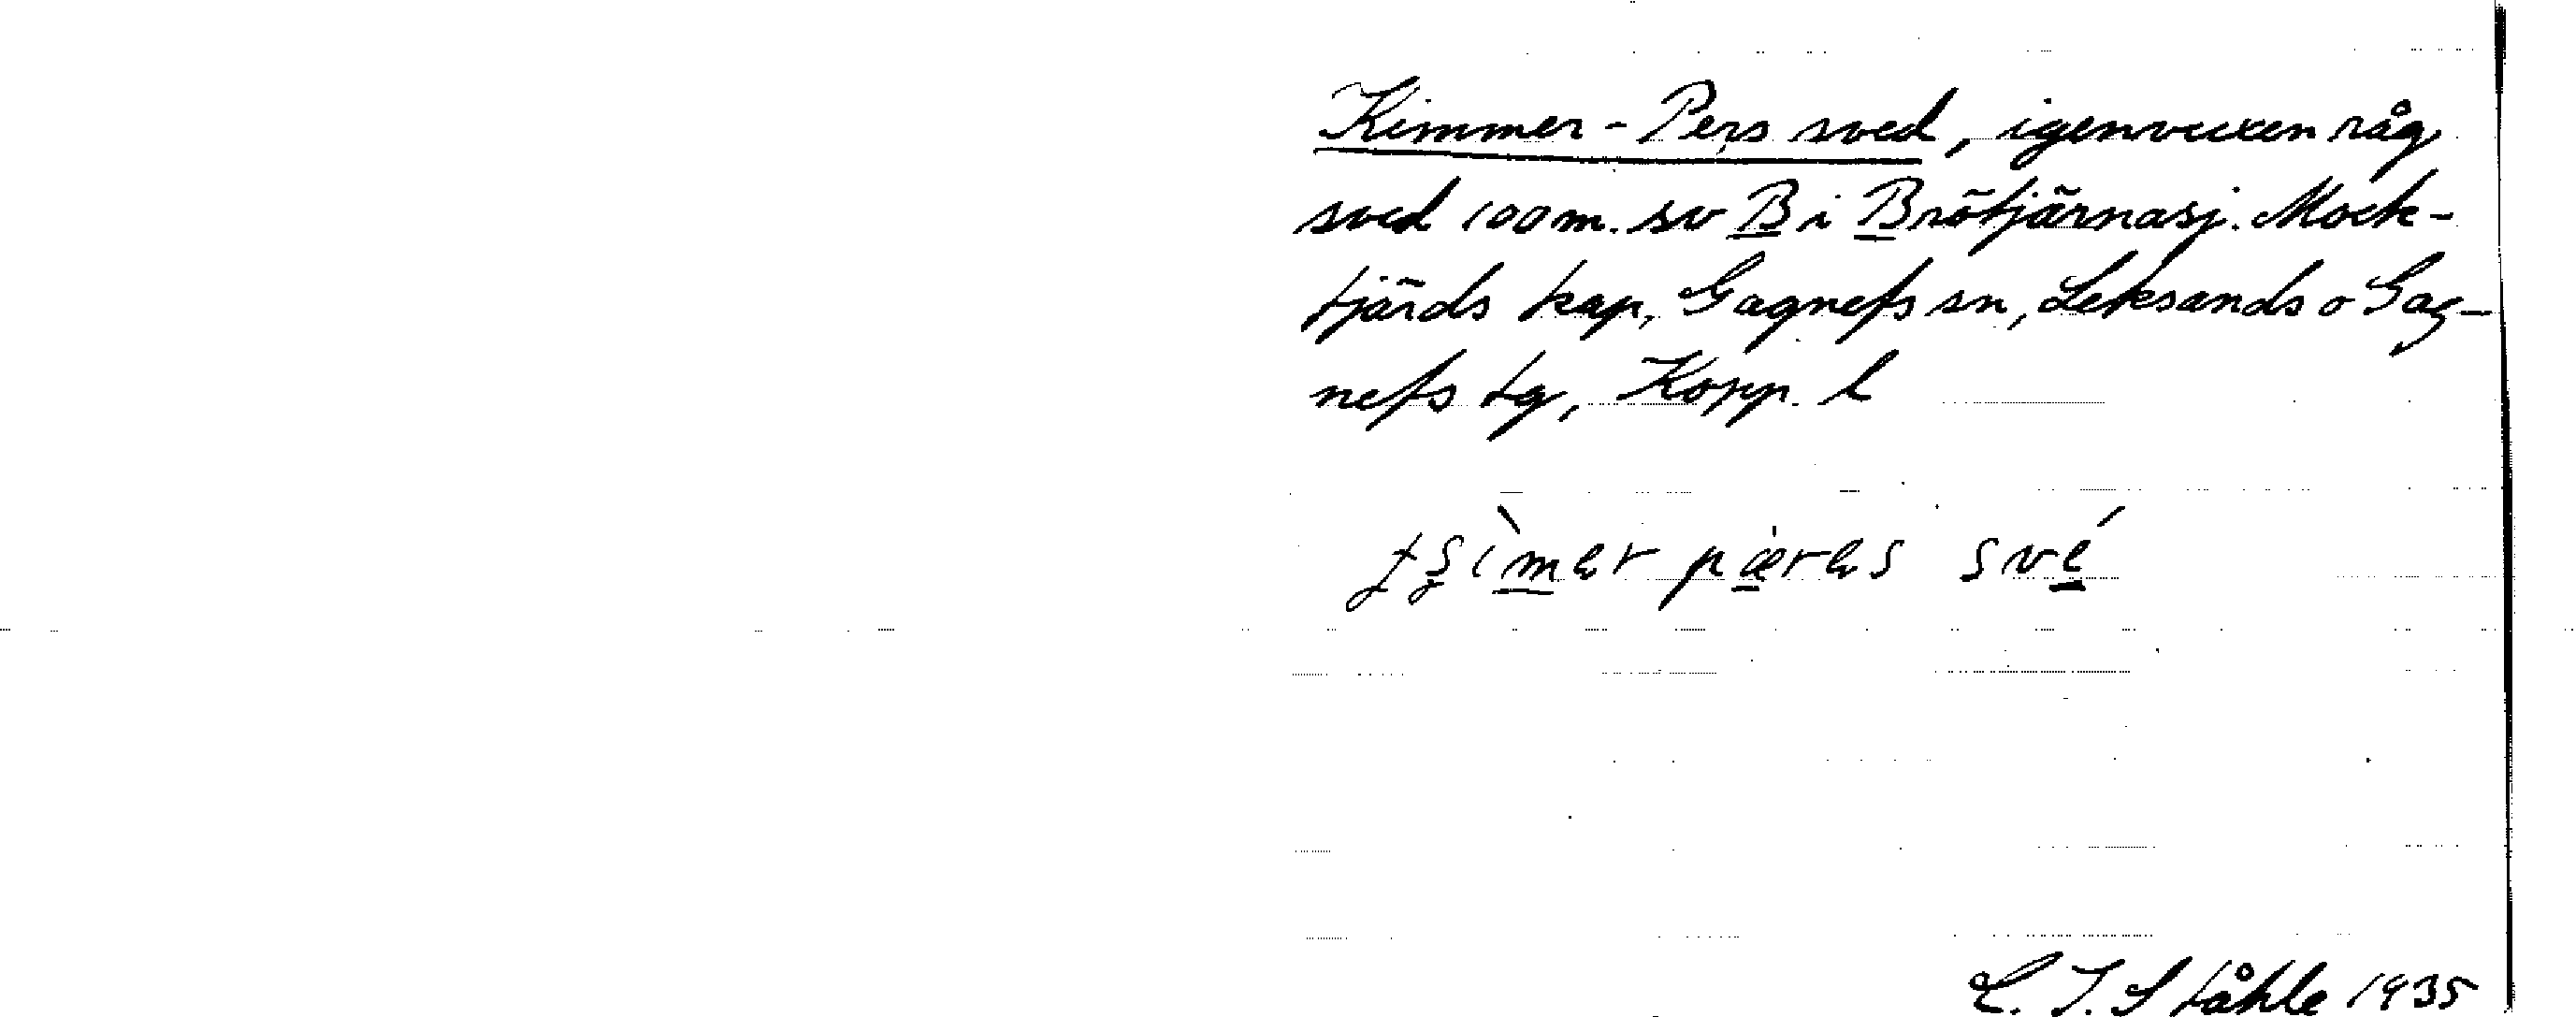 Kimmer-Pers sved, igenvuxen råg
sved 100 m. sv B i Brötjärnasj. Mock-
fjärds kap, Gagnefs sn, Leksands o Gag-
nefs tg, Kopp. l
sve
C. I. Ståhle 1935